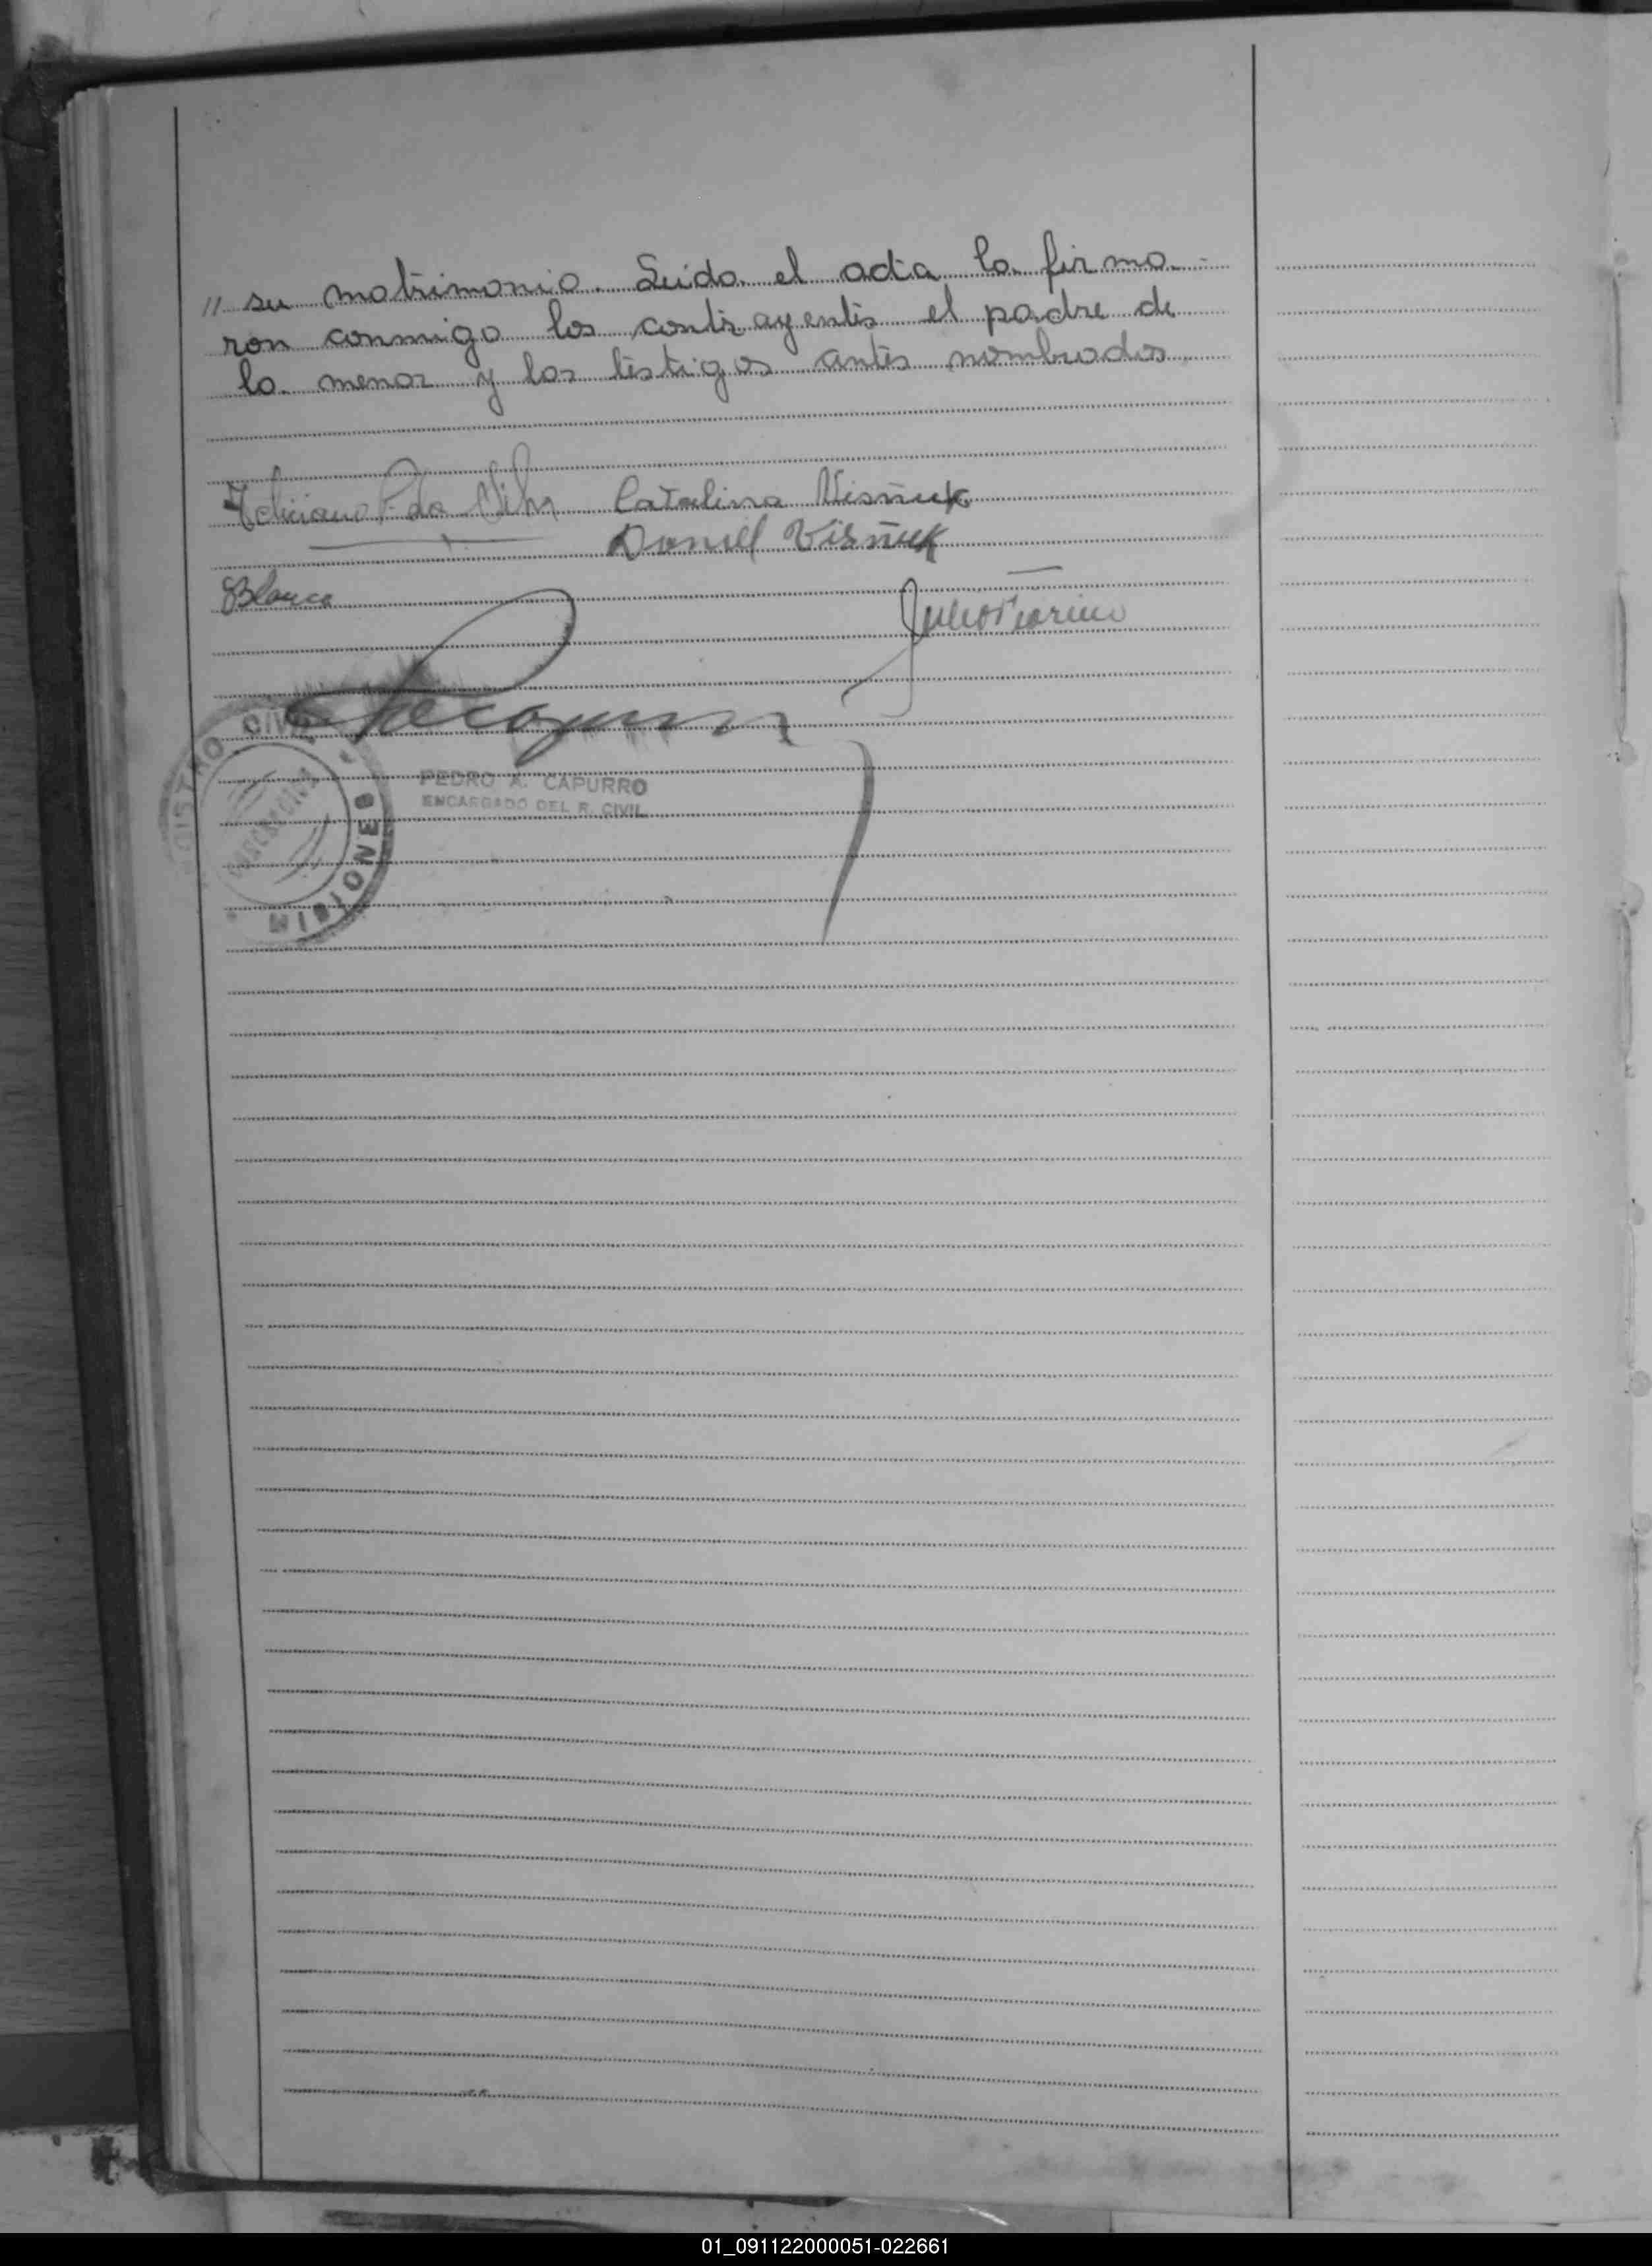 // su matrimonio. Leida el acta la firma-
ron conmigo los contrayentes el padre de
la menor y los testigos antes nombrados.
Feliciano P. da Silva Catalina Visñuk
Daniel Visñuk
Blanca
Julio
PEDRO A. CAPURRO
ENCARGADO DEL R. CIVIL
REGISTRO CIVIL
MISIONES
01_091122000051-022661